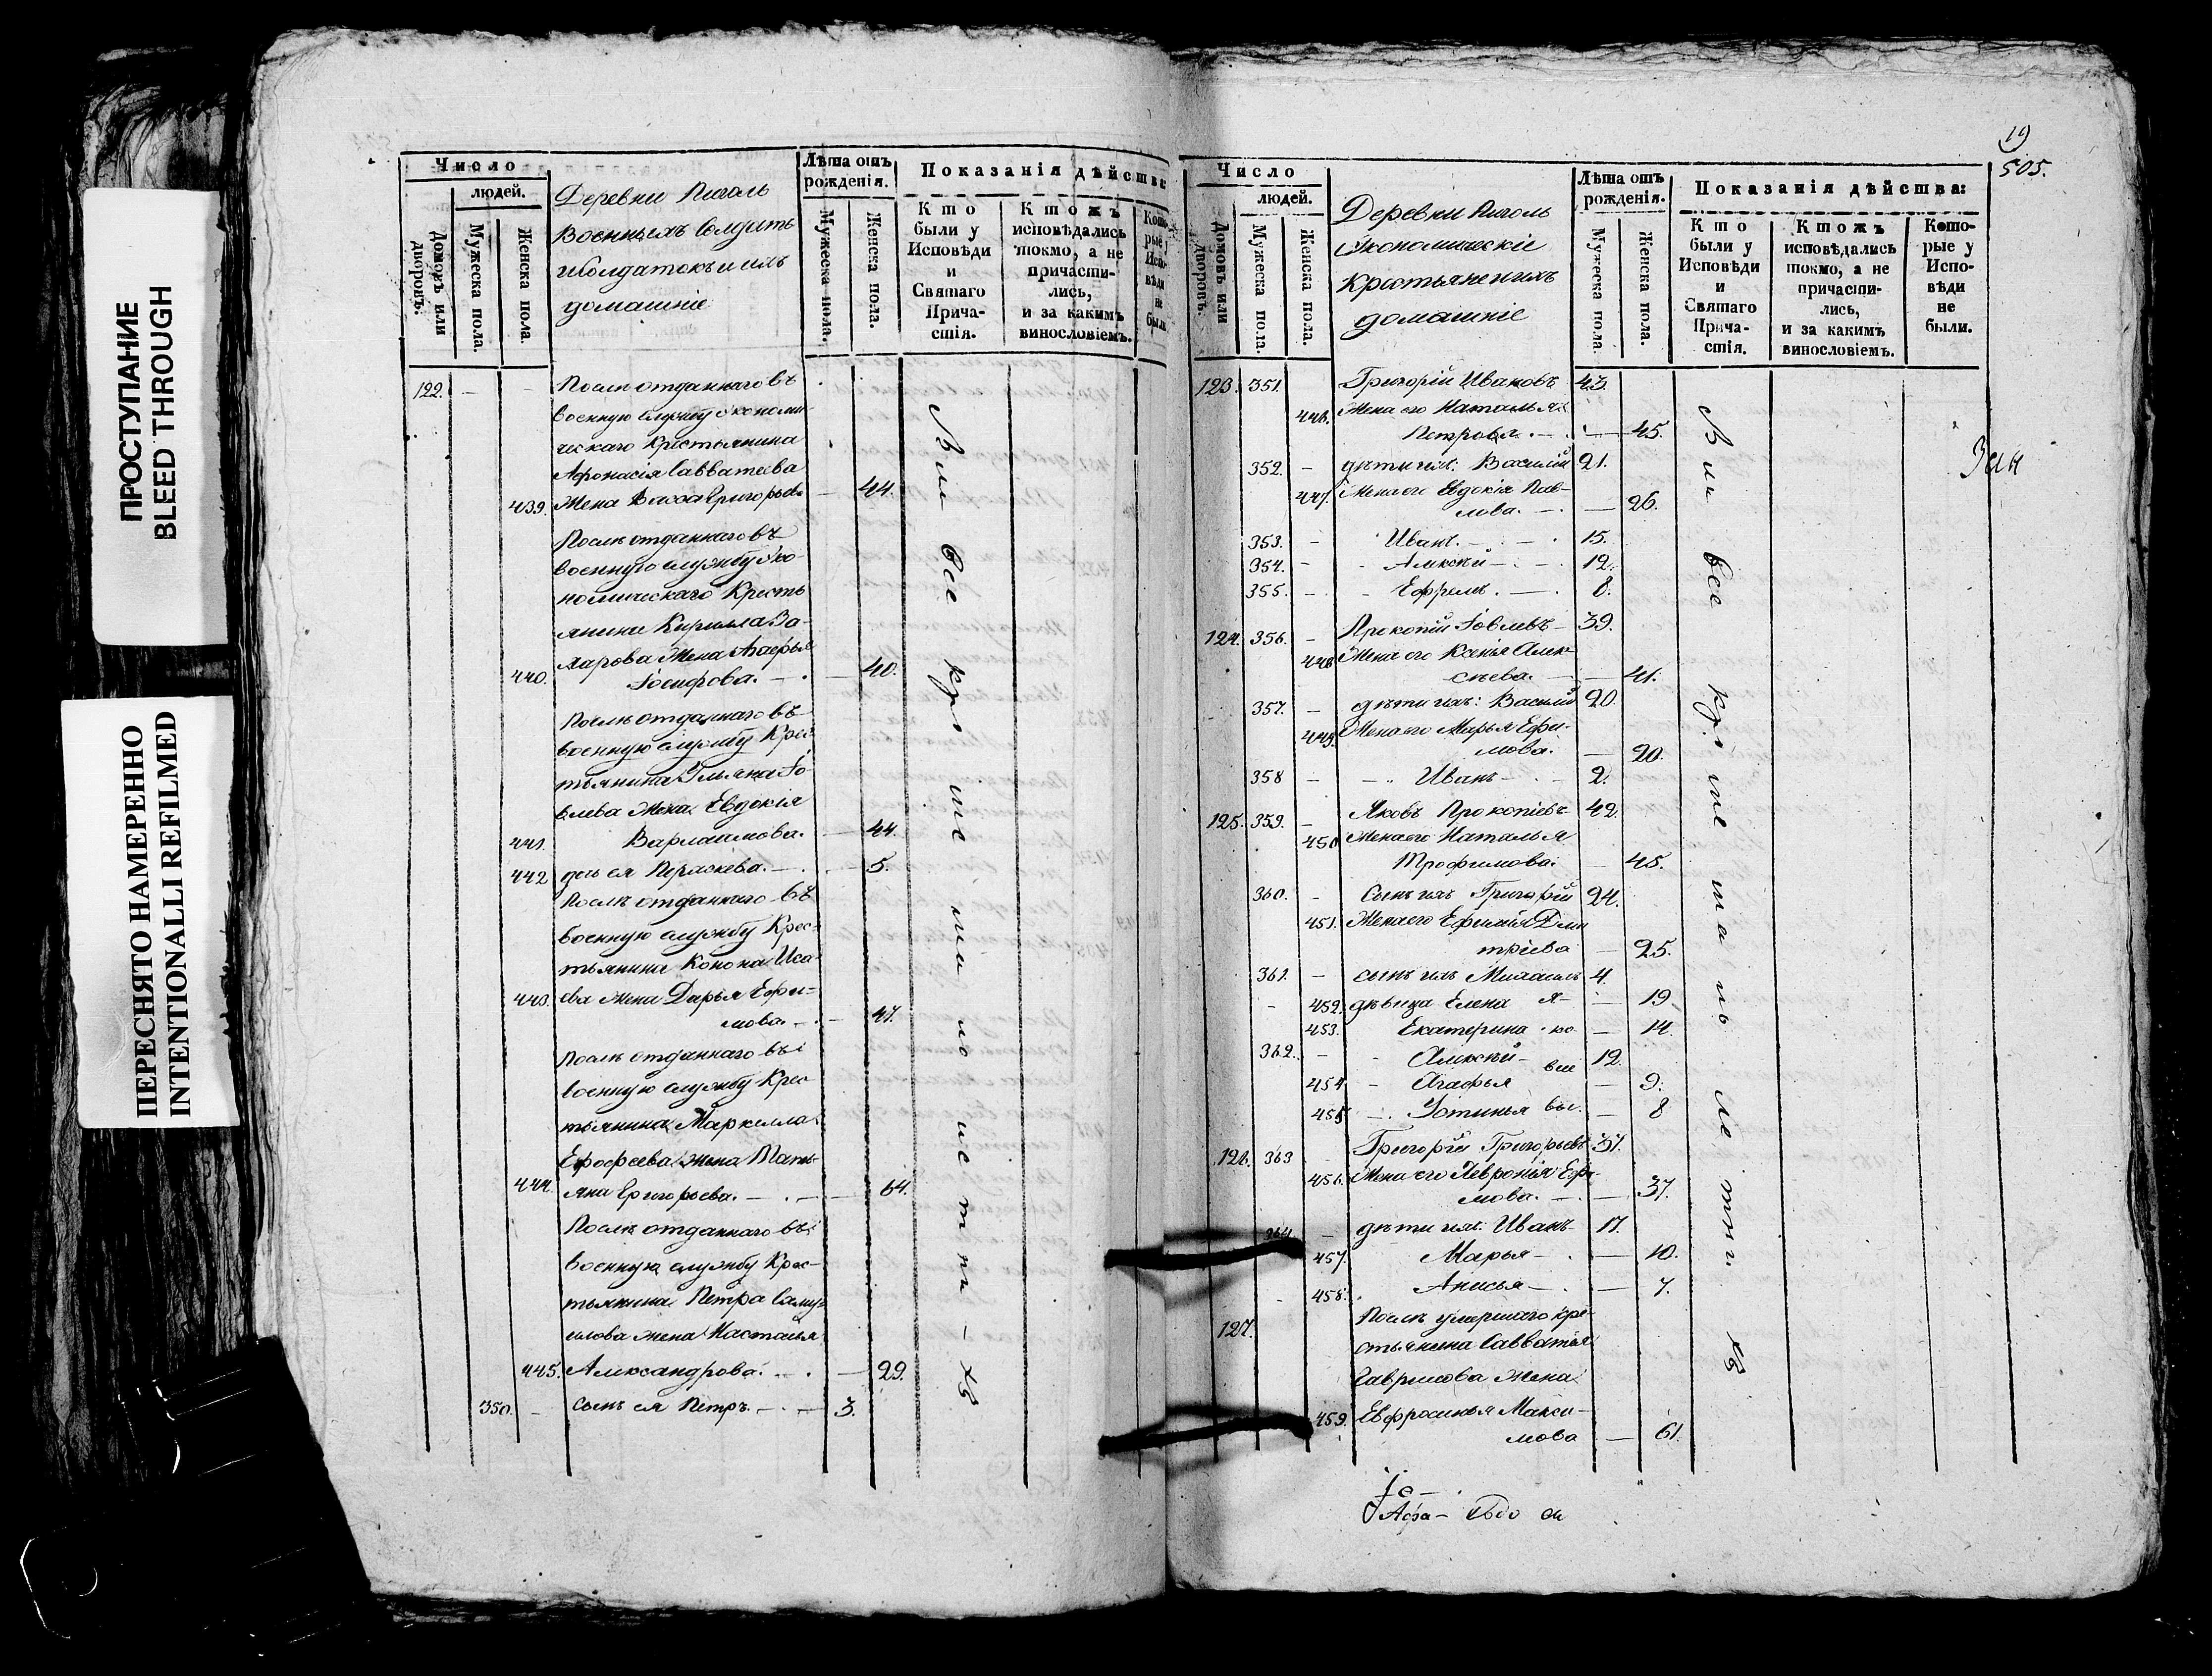 ПРОСТУПАНИЕ
BLEED THROUGH
ПЕРЕСНЯТО НАМЕРЕННО
INTENTIONALLI REFILMED
Число
людей.
Домовъ или дворовъ.
Мужеска пола.
Женска пола.
Деревни
военныхъ солдатъ
и солдатокъ и ихъ
домашніе
Лѣта отъ рожденія.
Мужеска пола.
Женска пола.
Показанія дѣйства:
Кто были у Исповѣди и Святаго Причастія.
Ктожъ исповѣдались токмо, а не причастились, и за какимъ винословіемъ.
Которые Исповѣди не были
122. Послѣ отданнаго въ
военную службу экономи-
ческаго крестьянина
Афонасія Савватеева
439. Жена Васса Григорьева 44.
Послѣ отданнаго въ
военную службу эко-
номическаго кресть
янина Кирилла За-
харова жена Агафья
440. Іосифова. 40.
Послѣ отданнаго въ
военную службу крес
тьянина Ульяна Іо
влева жена Евдокія
441. Варлаамова. 44.
442 дочь ея Параскева. 5.
Послѣ отданнаго въ
военную службу крес-
тьянина Конона Иса
443. ева жена Дарья Ефи=
мова. 47.
Послѣ отданнаго въ
военную службу крес
тьянина Маркелла
Ерофеева жена Тать
444. яна Григорьева. 64.
Послѣ отданнаго въ
военную службу крес-
тьянина Петра Саму=
илова жена Настасья
445. Александрова. 29.
350. сынъ ея Петръ. 3.
19
505.
Число
людей.
Домовъ или дворовъ.
Мужеска пола.
Женска пола.
Деревни
экономическіе
крестьяне и ихъ
домашніе
Лѣта отъ рожденія.
Мужеска пола.
Женска пола.
Показанія дѣйства:
Кто были у Исповѣди и Святаго Причастія.
Ктожъ исповѣдались токмо, а не причастились, и за какимъ винословіемъ.
Которые у Исповѣди не были.
123. 351. Григорій Ивановъ 43.
446. Жена его Наталья
Петрова. 45.
352. дѣти ихъ: Василій 21.
447. Жена его Евдокія Пав-
лова. 26.
353. Иванъ. 15.
354. Алексѣй 12.
355. Ефремъ. 8.
124. 356. Прокопій Іовлевъ 39.
448 Жена его Ксенія Алек-
сѣева. 41.
357. дѣти ихъ: Василій 20.
449. Жена его Марья Ефи-
мова. 20.
358 Иванъ 2.
125. 359. Яковъ Прокопіевъ 42.
450 Жена его Наталья
Трофимова. 45.
360. Сынъ ихъ Григорій 24.
451. Жена его Ефимія Дми
тріева 25.
361. сынъ ихъ Михаилъ 4.
452. дѣвица Елена 19
453. Екатерина 14.
362. Алексѣй 12.
454 Агафья 9.
455 Устинья 8
126. 363 Григорій Григорьевъ 37.
456. Жена его Февронія Ефи-
мова. 37.
364 дѣти ихъ: Иванъ 17.
457. Марья 10.
458. Анисья 7.
127. Послѣ умершаго кре-
стьянина Савватія
Гаврилова жена
459. Евфросинья Макси-
мова 61.